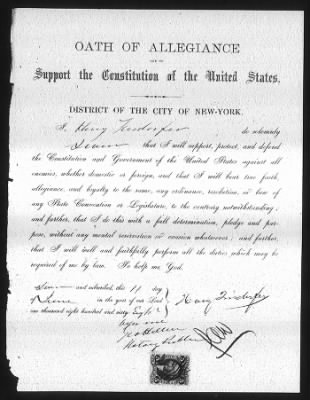 OATH OF ALLEGIANCE
Support the Constitution of the United States.
DISTRICT OF THE CITY OF NEW-YORK.
I, Henry do solemnly
that I will support, protect, and defend
the Constitution and Government of the United States against all
enemies, whether domestic or foreign, and that I will bear true faith,
allegiance, and loyalty to the same, any ordinance, resolution, or law of
any State Convention or Legislature, to the contrary notwithstanding;
and further, that I do this with a full determination, pledge and pur-
pose, without any mental reservation or evasion whatsoever; and further,
that I will well and faithfully perform all the duties which may be
required of me by law. So help me God.
and subscribed, this 11 day
in the year of our Lord
one thousand eight hundred and sixty Eight
before me
Notary Public